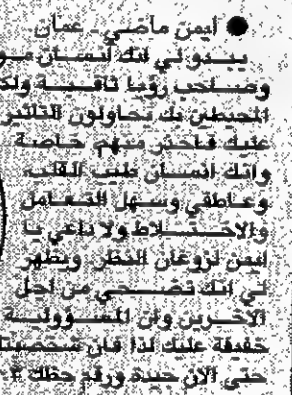 ● ايمن ماضي - عمان
يبدو لي انك انسان
وصاحب رؤيا ثاقبة
المحيطين بك يحاولون التاثير
عليك فاحذر منهم خاصة
وانك انسان طيب القلب
وعاطفي وسهل التعامل
والاختلاط ولا داعي يا
ايمن لزوغان النظر ويظهر
لي انك تضحي من اجل
الاخرين وان المسؤولية
خفيفة عليك لذا فان
حتى الان جيدة ورقم حظك